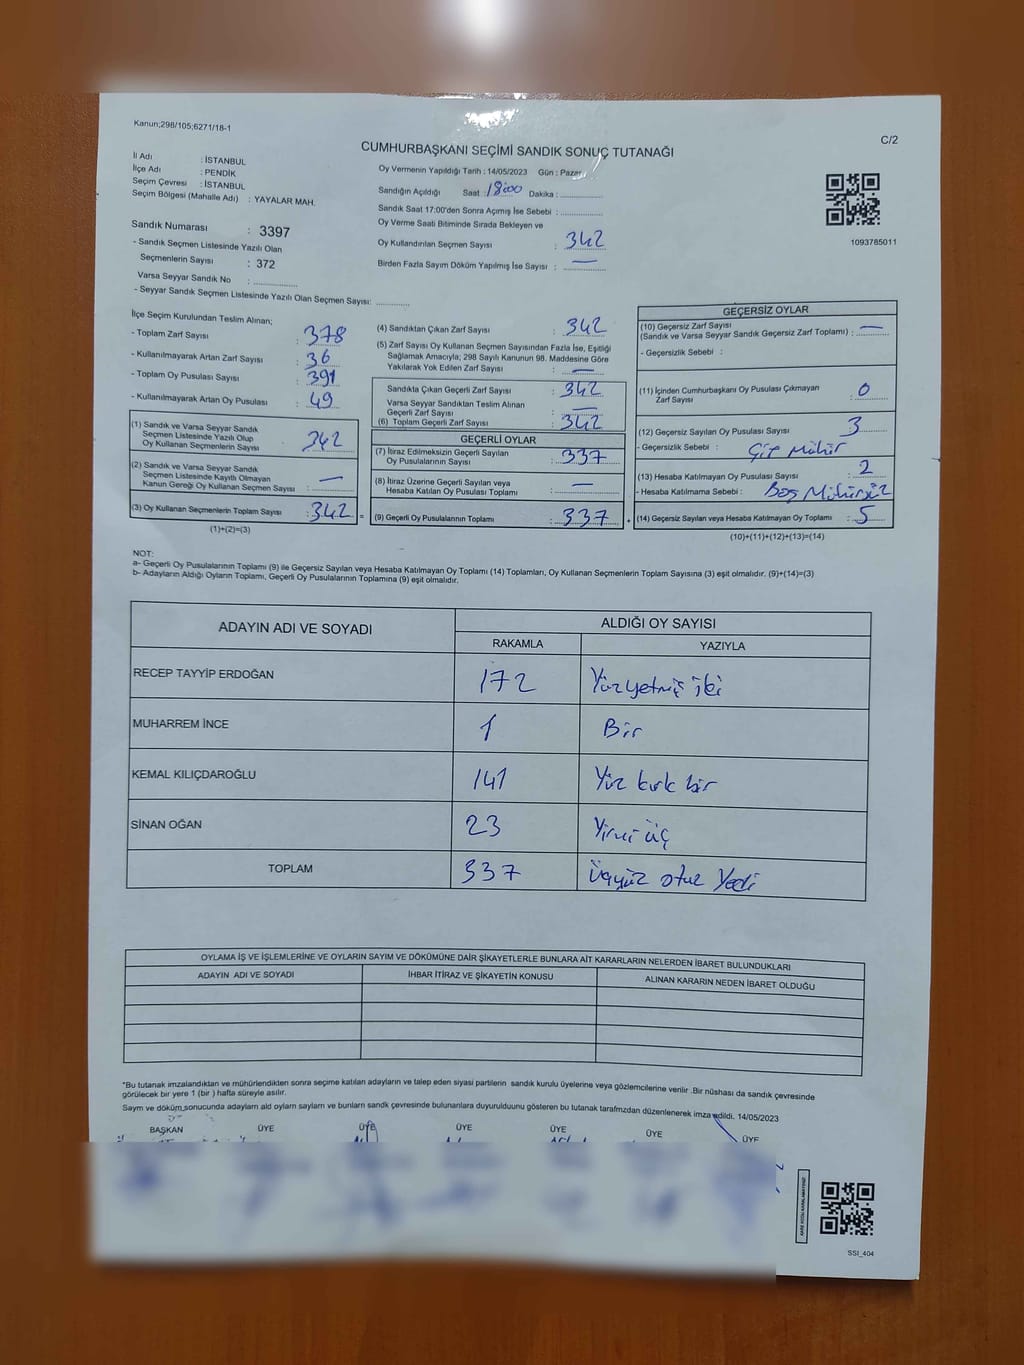 Kanun;298/105;6271/18-1
C/2
CUMHURBAŞKANI SEÇİMİ SANDIK SONUÇ TUTANAĞI
İl Adı : İSTANBUL
İlçe Adı : PENDİK
Seçim Çevresi : İSTANBUL
Seçim Bölgesi (Mahalle Adı) : YAYALAR MAH.
Oy Vermenin Yapıldığı Tarih : 14/05/2023 Gün : Pazar
Sandığın Açıldığı Saat : 18:00 Dakika :
Sandık Saat 17:00'den Sonra Açımış İse Sebebi :
Oy Verme Saati Bitiminde Sırada Bekleyen ve
Oy Kullandırılan Seçmen Sayısı : 342
Birden Fazla Sayım Döküm Yapılmış İse Sayısı : —
1093785011
Sandık Numarası : 3397
- Sandık Seçmen Listesinde Yazılı Olan
Seçmenlerin Sayısı : 372
Varsa Seyyar Sandık No :
- Seyyar Sandık Seçmen Listesinde Yazılı Olan Seçmen Sayısı:
İlçe Seçim Kurulundan Teslim Alınan;
- Toplam Zarf Sayısı : 378
- Kullanılmayarak Artan Zarf Sayısı : 36
- Toplam Oy Pusulası Sayısı : 391
- Kullanılmayarak Artan Oy Pusulası : 49
(1) Sandık ve Varsa Seyyar Sandık
Seçmen Listesinde Yazılı Olup
Oy Kullanan Seçmenlerin Sayısı : 342
(2) Sandık ve Varsa Seyyar Sandık
Seçmen Listesinde Kayıtlı Olmayan
Kanun Gereği Oy Kullanan Seçmen Sayısı : —
(3) Oy Kullanan Seçmenlerin Toplam Sayısı : 342 =
(1)+(2)=(3)
(4) Sandıktan Çıkan Zarf Sayısı : 342
(5) Zarf Sayısı Oy Kullanan Seçmen Sayısından Fazla İse, Eşitliği
Sağlamak Amacıyla; 298 Sayılı Kanunun 98. Maddesine Göre
Yakılarak Yok Edilen Zarf Sayısı : —
Sandıkta Çıkan Geçerli Zarf Sayısı : 342
Varsa Seyyar Sandıktan Teslim Alınan
Geçerli Zarf Sayısı : —
(6) Toplam Geçerli Zarf Sayısı : 342
GEÇERLİ OYLAR
(7) İtiraz Edilmeksizin Geçerli Sayılan
Oy Pusulalarının Sayısı : 337
(8) İtiraz Üzerine Geçerli Sayılan veya
Hesaba Katılan Oy Pusulası Toplamı : —
(9) Geçerli Oy Pusulalarının Toplamı : 337 +
GEÇERSİZ OYLAR
(10) Geçersiz Zarf Sayısı
(Sandık ve Varsa Seyyar Sandık Geçersiz Zarf Toplamı) : —
- Geçersizlik Sebebi :
(11) İçinden Cumhurbaşkanı Oy Pusulası Çıkmayan
Zarf Sayısı : 0
(12) Geçersiz Sayılan Oy Pusulası Sayısı : 3
- Geçersizlik Sebebi : Çift Mühür
(13) Hesaba Katılmayan Oy Pusulası Sayısı : 2
- Hesaba Katılmama Sebebi : Boş Mühürsüz
(14) Geçersiz Sayılan veya Hesaba Katılmayan Oy Toplamı : 5
(10)+(11)+(12)+(13)=(14)
NOT:
a- Geçerli Oy Pusulalarının Toplamı (9) ile Geçersiz Sayılan veya Hesaba Katılmayan Oy Toplamı (14) Toplamları, Oy Kullanan Seçmenlerin Toplam Sayısına (3) eşit olmalıdır. (9)+(14)=(3)
b- Adayların Aldığı Oyların Toplamı, Geçerli Oy Pusulalarının Toplamına (9) eşit olmalıdır.
ADAYIN ADI VE SOYADI
ALDIĞI OY SAYISI
RAKAMLA YAZIYLA
RECEP TAYYİP ERDOĞAN 172 Yüzyetmiş iki
MUHARREM İNCE 1 Bir
KEMAL KILIÇDAROĞLU 141 Yüz kırk bir
SİNAN OĞAN 23 Yirmi üç
TOPLAM 337 Üçyüz otuz Yedi
OYLAMA İŞ VE İŞLEMLERİNE VE OYLARIN SAYIM VE DÖKÜMÜNE DAİR ŞİKAYETLERLE BUNLARA AİT KARARLARIN NELERDEN İBARET BULUNDUKLARI
ADAYIN ADI VE SOYADI İHBAR İTİRAZ VE ŞİKAYETİN KONUSU ALINAN KARARIN NEDEN İBARET OLDUĞU
*Bu tutanak imzalandıktan ve mühürlendikten sonra seçime katılan adayların ve talep eden siyasi partilerin sandık kurulu üyelerine veya gözlemcilerine verilir .Bir nüshası da sandık çevresinde
görülecek bir yere 1 (bir ) hafta süreyle asılır.
Sayım ve döküm sonucunda adayların ald oyların sayların ve bunların sandk çevresinde bulunanlara duyurulduunu gösteren bu tutanak tarafmzdan düzenlenerek imza edildi. 14/05/2023
BAŞKAN ÜYE ÜYE ÜYE ÜYE ÜYE ÜYE
SSI_404